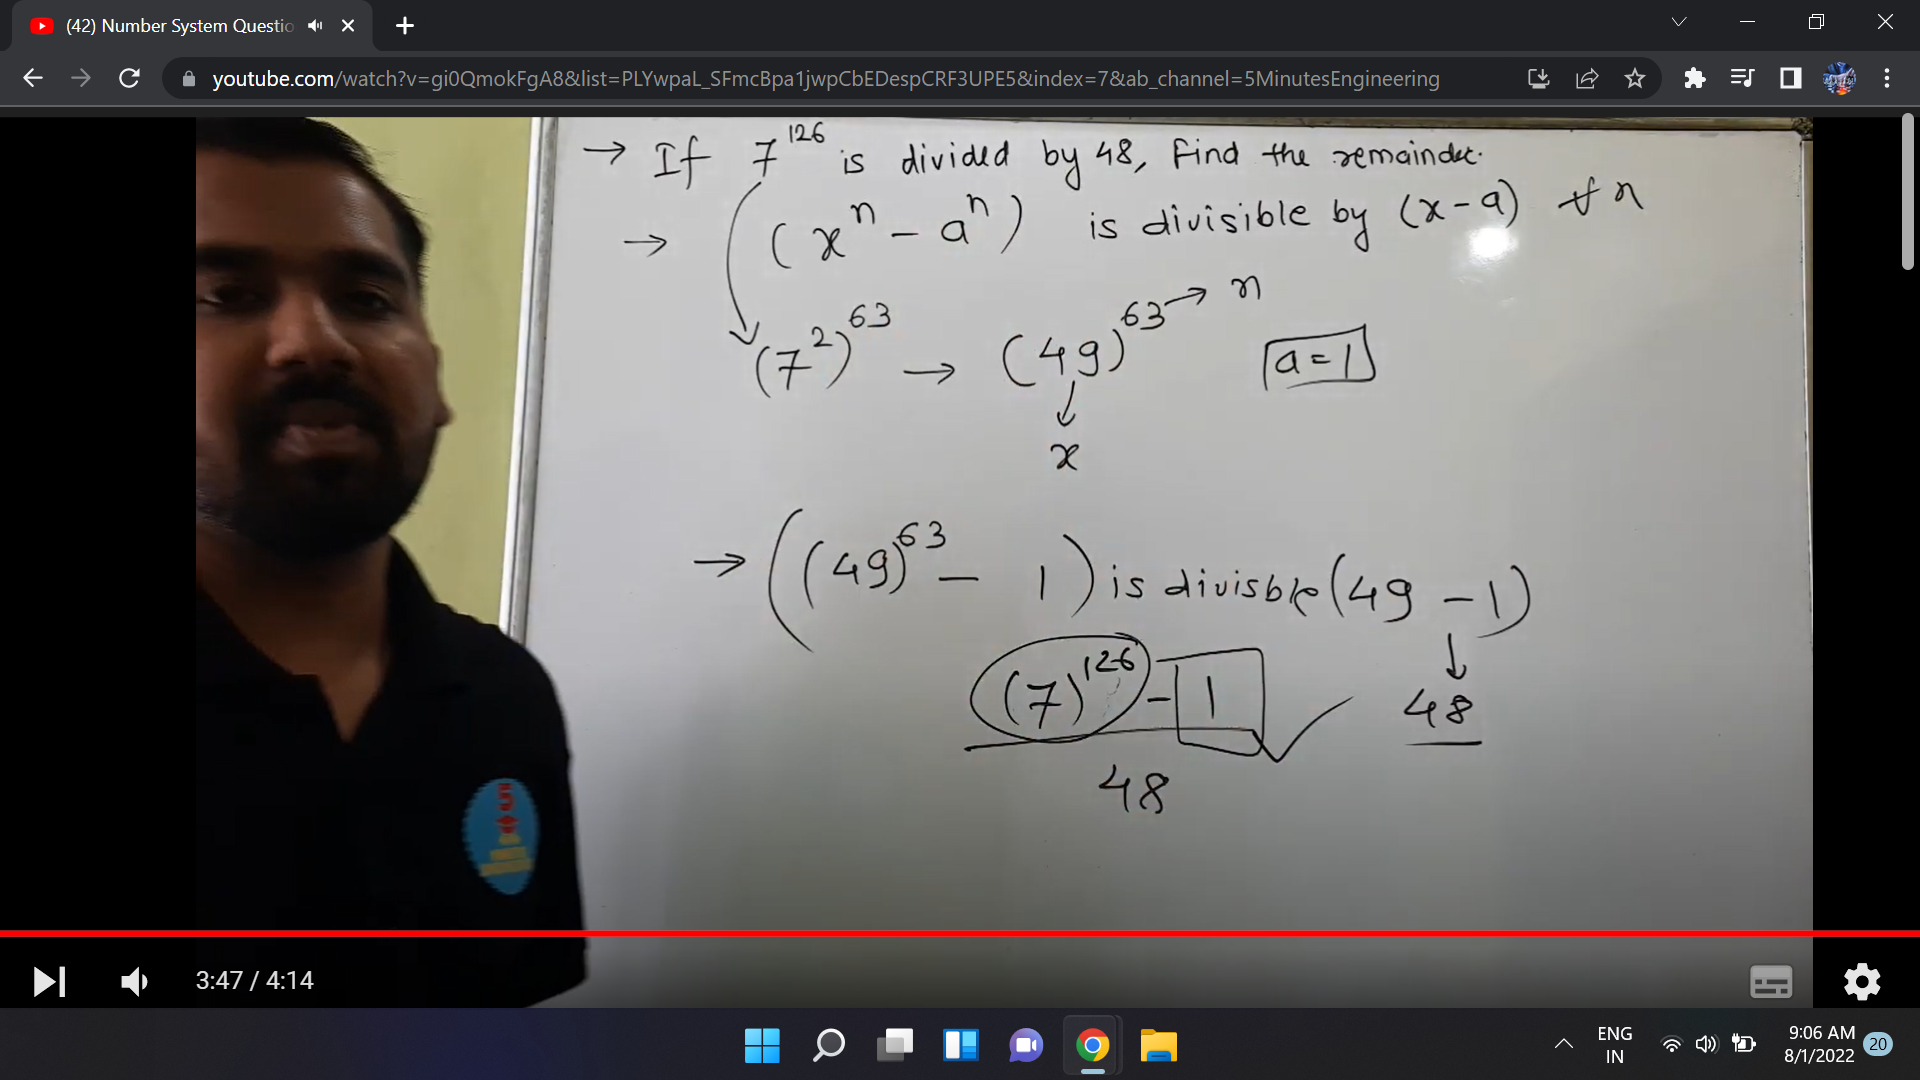 (42) Number System Questio
youtube.com/watch?v=gi0QmokFgA8&list=PLYwpaL_SFmcBpa1jwpCbEDespCRF3UPE5&index=7&ab_channel=5MinutesEngineering
→ If 7^126 is divided by 48, Find the remainder.
→ (x^n - a^n) is divisible by (x-a) ∀ n
(7^2)^63 → (49)^63 → n
a = 1
x
→ ((49)^63 - 1) is divisble (49 - 1)
(7)^126 - 1
48
48
5
3:47 / 4:14
ENG
IN
9:06 AM
8/1/2022
20